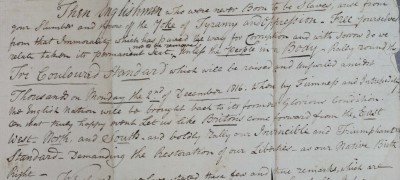 Then Englishmen who were never Born to be Slaves, arise from
your Slumber and throw off the Yoke of Tyranny and Oppression – Free yourselves
from that Immorality which has paved the way for Corruption and with Sorrow do we
not to be removed
relate taken its permanent Seat, Unless the People in a Body – Rally round the
Tri Coulourd Standard which will be raised and supported amidst
Thousands on Monday the 2nd of December 1816. When by Firmness and Intrepidity
the English Nation will be brought back to its former Glorious Condition.
On that truly happy event Let us like Britons come forward from the East
West – North and South – and boldly Rally our Invincible and Triumphant
Standard – Demanding the Restoration of our Liberties as our Nation
Right –
these few and true remarks which are